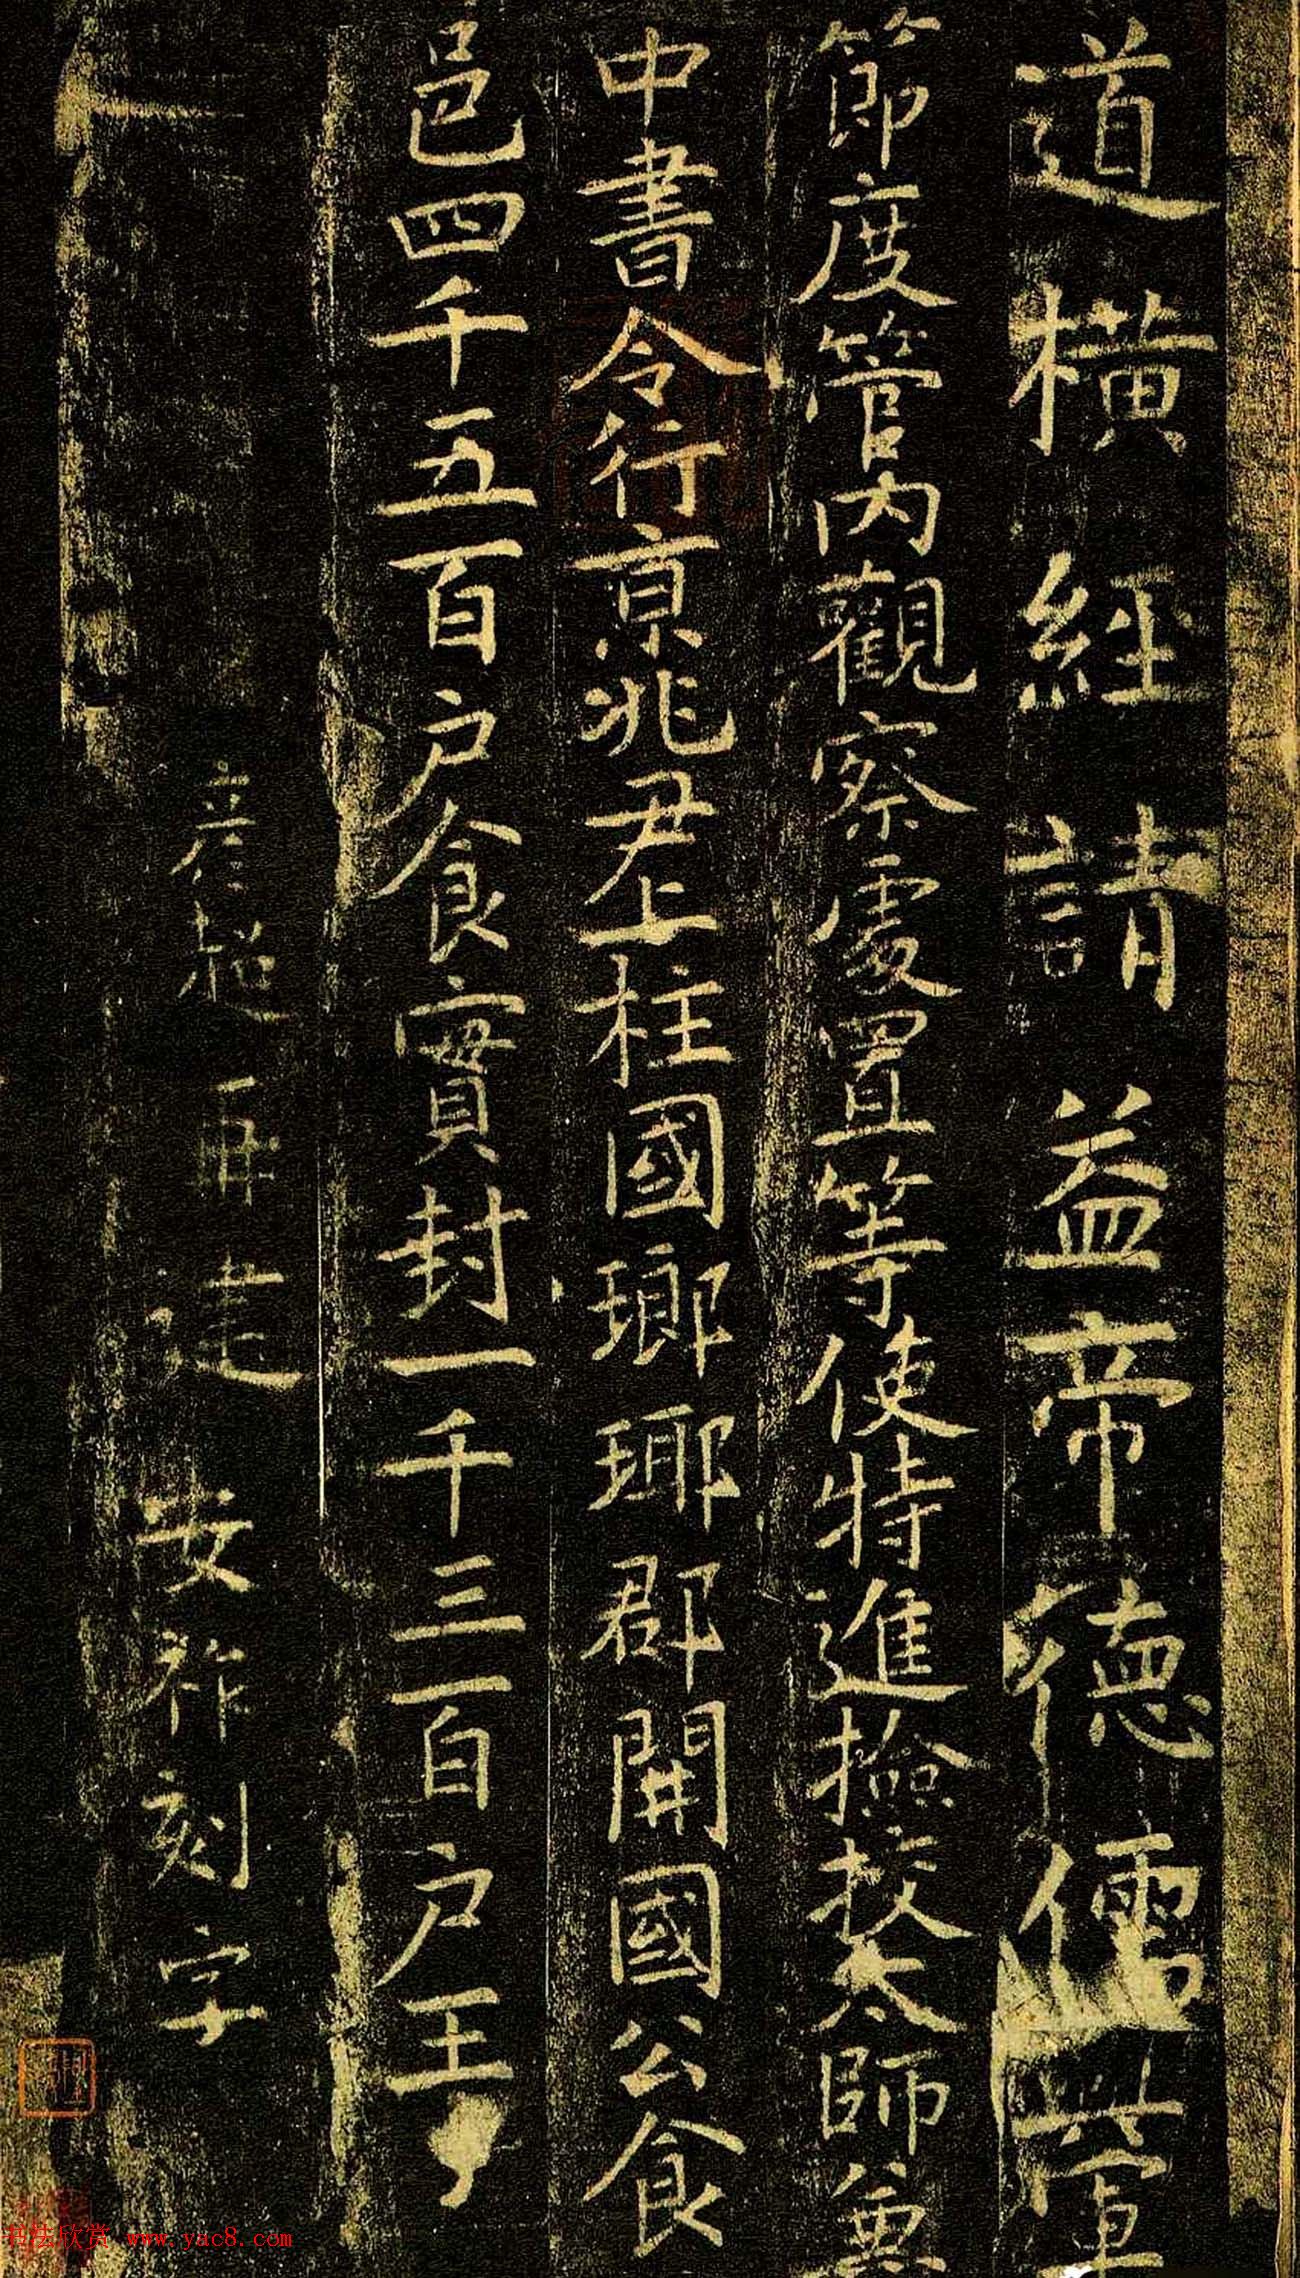 道橫經請益帝德儒
節度管內觀察處置等使特進撿挍太師兼
中書令行京兆尹上柱國瑯瑘郡開國公食
邑四千五百户食實封一千三百户王
彥超再建
安祚刻字
书法欣赏 www.yac8.com